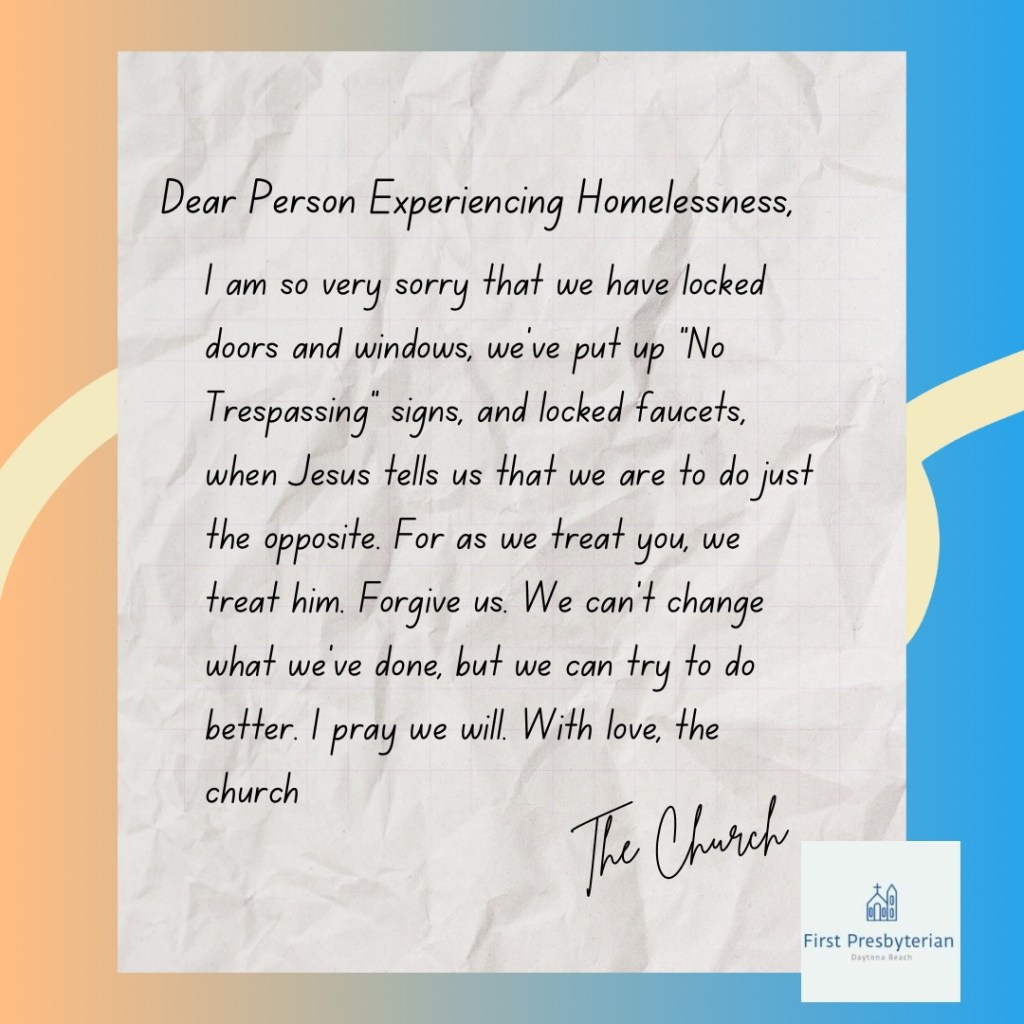 Dear Person Experiencing Homelessness,
I am so very sorry that we have locked
doors and windows, we've put up "No
Trespassing" signs, and locked faucets,
when Jesus tells us that we are to do just
the opposite. For as we treat you, we
treat him. Forgive us. We can't change
what we've done, but we can try to do
better. I pray we will. With love, the
church
The Church
First Presbyterian
Daytona Beach